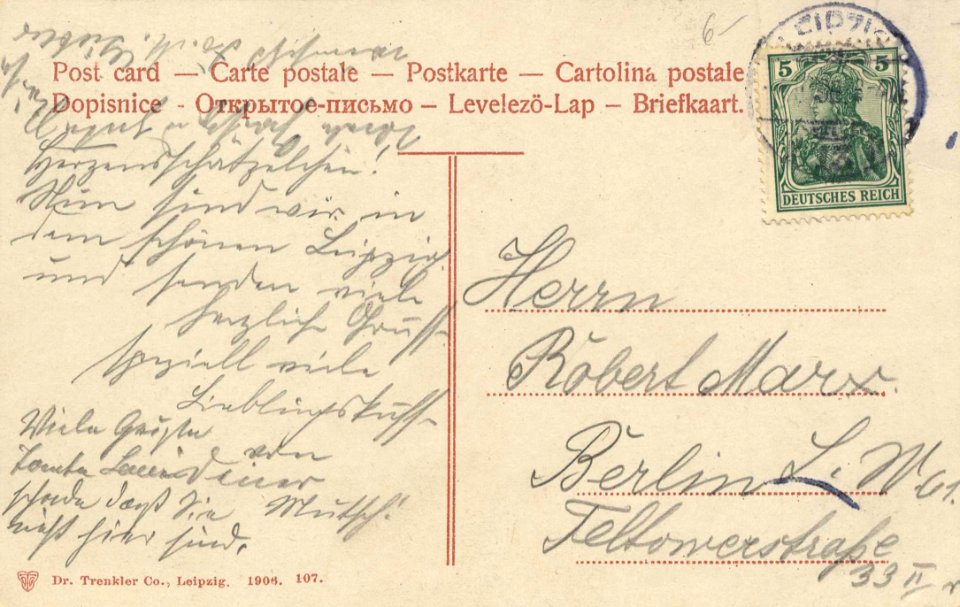 Post card — Carte postale — Postkarte — Cartolina postale
Dopisnice - Открытое-письмо — Levelezö-Lap — Briefkaart.
6-
LEIPZIG
5 5
DEUTSCHES REICH
Herzensschätzelchen!
Nun sind wir in
dem schönen Leipzig
und senden viele
herzliche Grüsse
speziell viele
Lieblingsküsse
von
Deiner
Mutsch!
Viele Grüße
Tante
schade daß Sie
nicht hier sind.
Herrn
Robert Marx
Berlin S. W. 61.
Teltowerstraße
33 II r
Dr. Trenkler Co., Leipzig. 1906. 107.